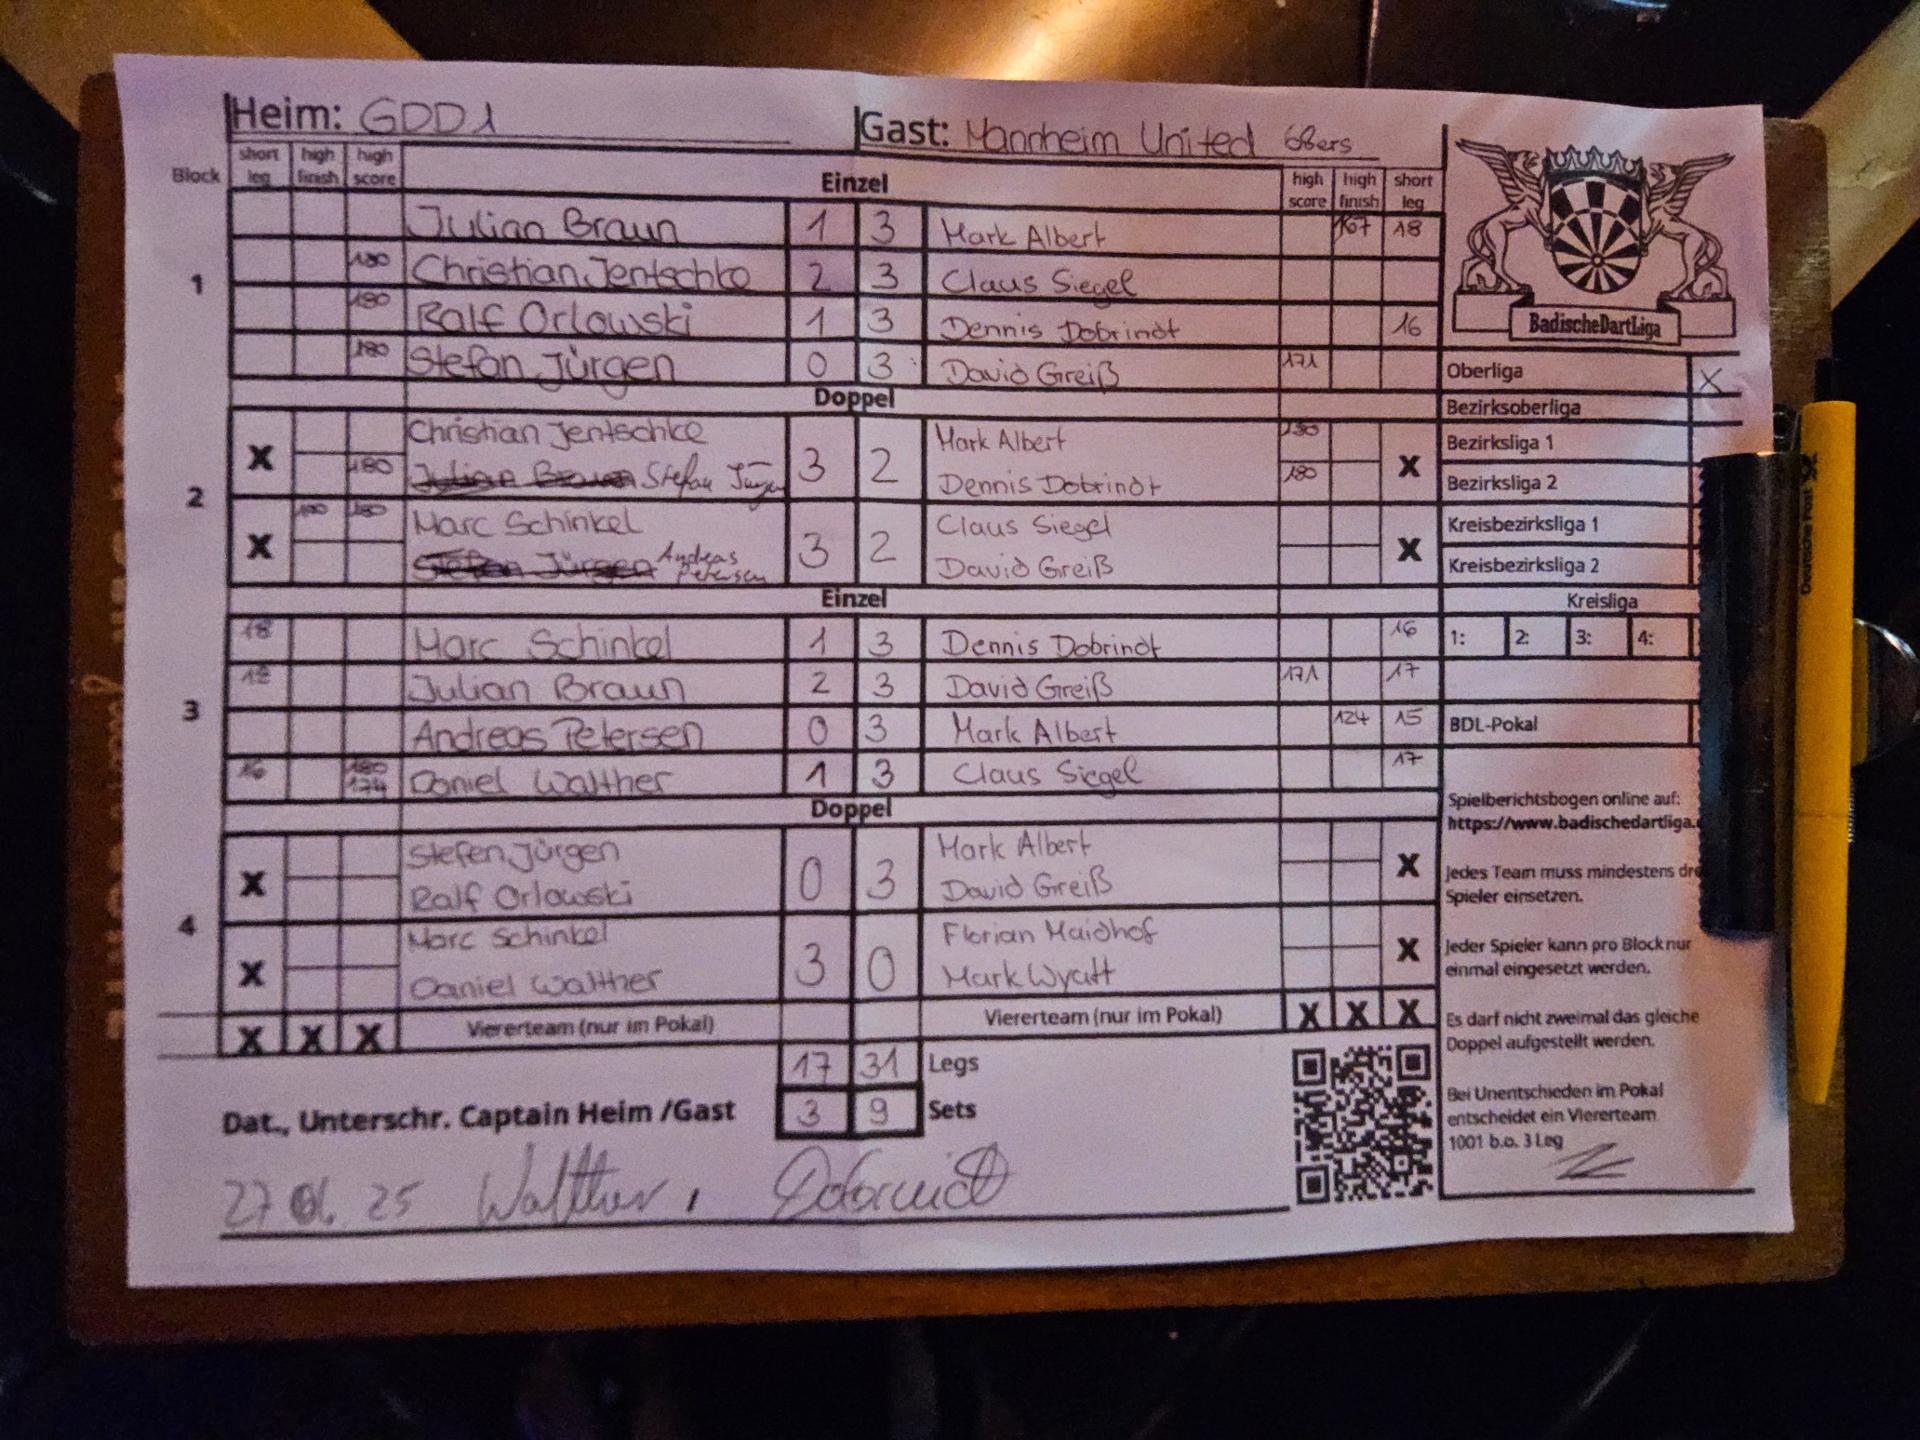 Heim: GDD1 Gast: Mannheim United 68ers
Block short leg high finish high score Einzel high score high finish short leg
1
Julian Braun 1 3 Mark Albert 167 18
180 Christian Jentschke 2 3 Claus Siegel
180 Ralf Orlowski 1 3 Dennis Dobrindt 16
180 Stefan Jürgen 0 3 David Greiß 171
Doppel
2
X Christian Jentschke 3 2 Mark Albert 180 X
180 Julian Braun Stefan Jürgen Dennis Dobrindt 180
X 180 Marc Schinkel 3 2 Claus Siegel X
Stefan Jürgen Andreas Petersen David Greiß
Einzel
3
18 Marc Schinkel 1 3 Dennis Dobrindt 16
18 Julian Braun 2 3 David Greiß 171 17
Andreas Petersen 0 3 Mark Albert 124 15
16 180 174 Daniel Walther 1 3 Claus Siegel 17
Doppel
4
X Stefen Jürgen 0 3 Mark Albert X
Ralf Orlowski David Greiß
X Marc Schinkel 3 0 Florian Maidhof X
Daniel Walther Mark Wyatt
X X X Viererteam (nur im Pokal) Viererteam (nur im Pokal) X X X
17 31 Legs
Dat., Unterschr. Captain Heim /Gast 3 9 Sets
27 06. 25 Walther, Dobrindt
BadischeDartLiga
Oberliga X
Bezirksoberliga
Bezirksliga 1
Bezirksliga 2
Kreisbezirksliga 1
Kreisbezirksliga 2
Kreisliga
1: 2: 3: 4:
BDL-Pokal
Spielberichtsbogen online auf:
https://www.badischedartliga.
Jedes Team muss mindestens
Spieler einsetzen.
Jeder Spieler kann pro Block nur
einmal eingesetzt werden.
Es darf nicht zweimal das gleiche
Doppel aufgestellt werden.
Bei Unentschieden im Pokal
entscheidet ein Viererteam
1001 b.o. 3 Leg
Deutsche Post